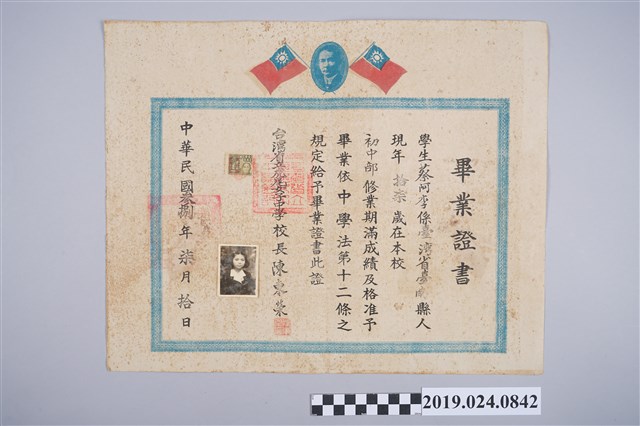 畢業證書
學生蔡阿李係臺灣省臺南縣人
現年拾柒歲在本校
初中部修業期滿成績及格准予
畢業依中學法第十二條之
規定給予畢業證書此證
台灣省立 中學校長陳東榮
中華民國叁捌年柒月拾日
2019.024.0842